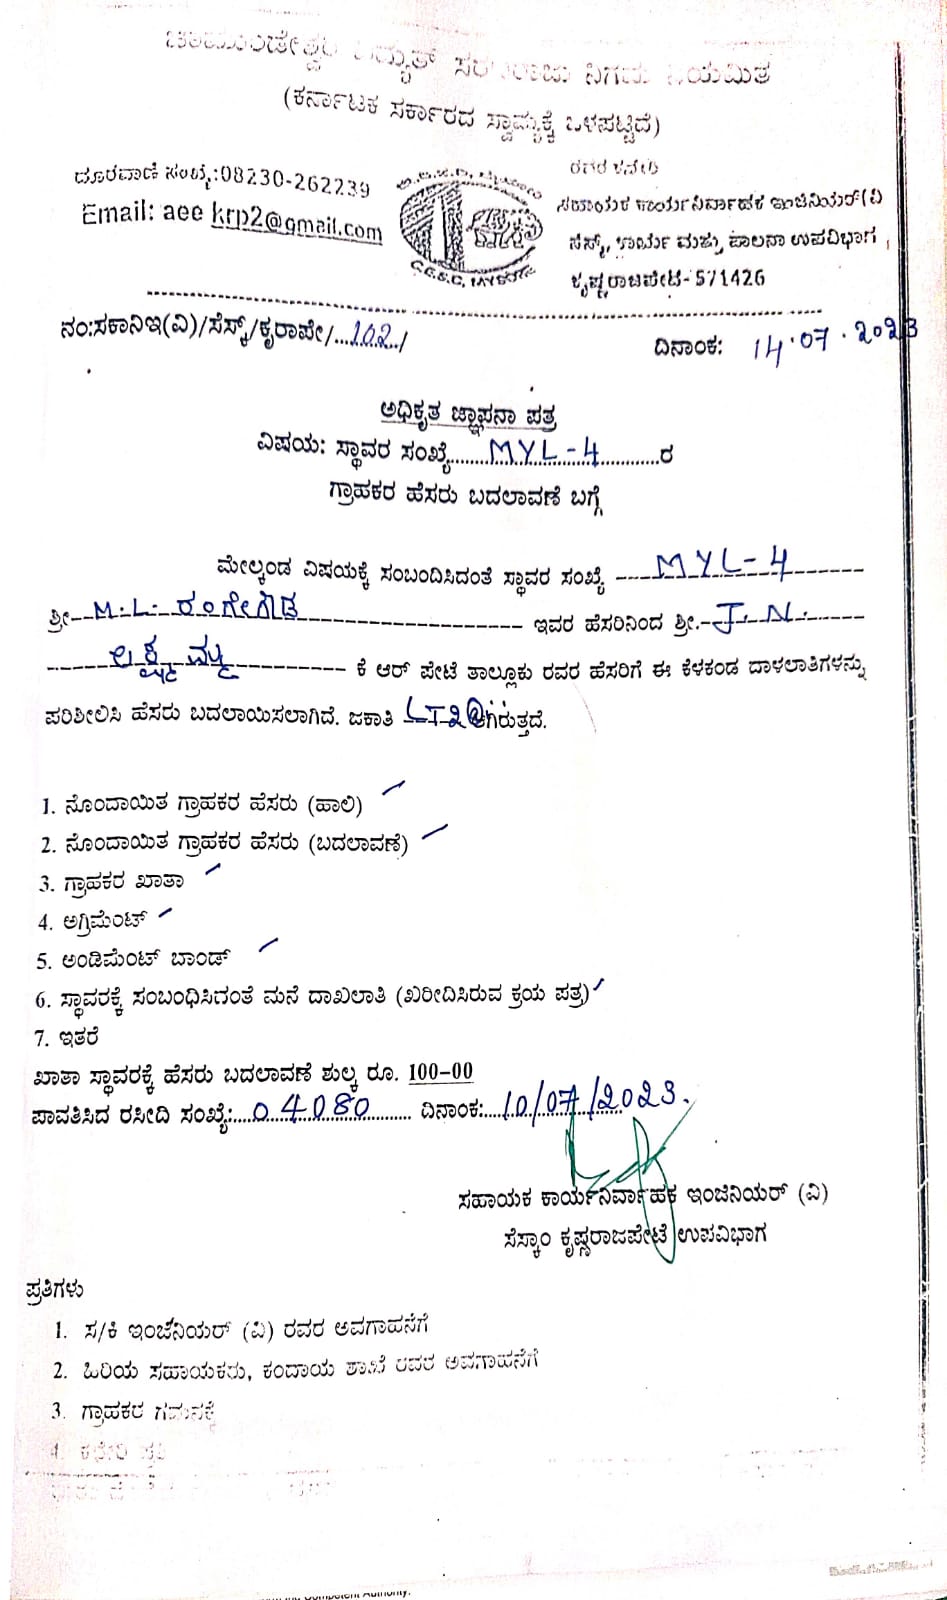 ಚಾಮುಂಡೇಶ್ವರಿ ವಿದ್ಯುತ್ ಸರಬರಾಜು ನಿಗಮ ನಿಯಮಿತ
(ಕರ್ನಾಟಕ ಸರ್ಕಾರದ ಸ್ವಾಮ್ಯಕ್ಕೆ ಒಳಪಟ್ಟಿದೆ)
ದೂರವಾಣಿ ಸಂಖ್ಯೆ:08230-262239
Email: aee krp2@gmail.com
C.E.S.C, MYSORE
ರವರ ಕಚೇರಿ
ಸಹಾಯಕ ಕಾರ್ಯನಿರ್ವಾಹಕ ಇಂಜಿನಿಯರ್(ವಿ
ಸೆಸ್ಕ್, ಕಾರ್ಯ ಮತ್ತು ಪಾಲನಾ ಉಪವಿಭಾಗ,
ಕೃಷ್ಣರಾಜಪೇಟೆ-571426
ನಂ:ಸಕಾನಿಇ(ವಿ)/ಸೆಸ್ಕ್/ಕೃರಾಪೇ/...102../
ದಿನಾಂಕ: 14.07.2023
ಅಧಿಕೃತ ಜ್ಞಾಪನಾ ಪತ್ರ
ವಿಷಯ: ಸ್ಥಾವರ ಸಂಖ್ಯೆ......MYL-4...........ರ
ಗ್ರಾಹಕರ ಹೆಸರು ಬದಲಾವಣೆ ಬಗ್ಗೆ
ಮೇಲ್ಕಂಡ ವಿಷಯಕ್ಕೆ ಸಂಬಂದಿಸಿದಂತೆ ಸ್ಥಾವರ ಸಂಖ್ಯೆ ----MYL-4-------
ಶ್ರೀ--M.L. ರಂಗೇಗೌಡ------------------ ಇವರ ಹೆಸರಿನಿಂದ ಶ್ರೀ.-J.N.-----
------ಲಕ್ಷ್ಮಮ್ಮ---------- ಕೆ ಆರ್ ಪೇಟೆ ತಾಲ್ಲೂಕು ರವರ ಹೆಸರಿಗೆ ಈ ಕೆಳಕಂಡ ದಾಳಲಾತಿಗಳನ್ನು
ಪರಿಶೀಲಿಸಿ ಹೆಸರು ಬದಲಾಯಿಸಲಾಗಿದೆ. ಜಕಾತಿ LT2 ಆಗಿರುತ್ತದೆ.
1. ನೊಂದಾಯಿತ ಗ್ರಾಹಕರ ಹೆಸರು (ಹಾಲಿ)
2. ನೊಂದಾಯಿತ ಗ್ರಾಹಕರ ಹೆಸರು (ಬದಲಾವಣೆ)
3. ಗ್ರಾಹಕರ ಖಾತಾ
4. ಅಗ್ರಿಮೆಂಟ್
5. ಅಂಡಿಮೆಂಟ್ ಬಾಂಡ್
6. ಸ್ಥಾವರಕ್ಕೆ ಸಂಬಂಧಿಸಿದಂತೆ ಮನೆ ದಾಖಲಾತಿ (ಖರೀದಿಸಿರುವ ಕ್ರಯ ಪತ್ರ)
7. ಇತರೆ
ಖಾತಾ ಸ್ಥಾವರಕ್ಕೆ ಹೆಸರು ಬದಲಾವಣೆ ಶುಲ್ಕ ರೂ. 100-00
ಪಾವತಿಸಿದ ರಸೀದಿ ಸಂಖ್ಯೆ:...04080........ ದಿನಾಂಕ:...10/07/2023.
ಸಹಾಯಕ ಕಾರ್ಯನಿರ್ವಾಹಕ ಇಂಜಿನಿಯರ್ (ವಿ)
ಸೆಸ್ಕಾಂ ಕೃಷ್ಣರಾಜಪೇಟೆ ಉಪವಿಭಾಗ
ಪ್ರತಿಗಳು
1. ಸ/ಕಿ ಇಂಜಿನಿಯರ್ (ವಿ) ರವರ ಅವಗಾಹನೆಗೆ
2. ಹಿರಿಯ ಸಹಾಯಕರು, ಕಂದಾಯ ಶಾಖೆ ರವರ ಅವಗಾಹನೆಗೆ
3. ಗ್ರಾಹಕರ ಗಮನಕ್ಕೆ
4. ಕಛೇರಿ ಪ್ರತಿ
Competent Authority.